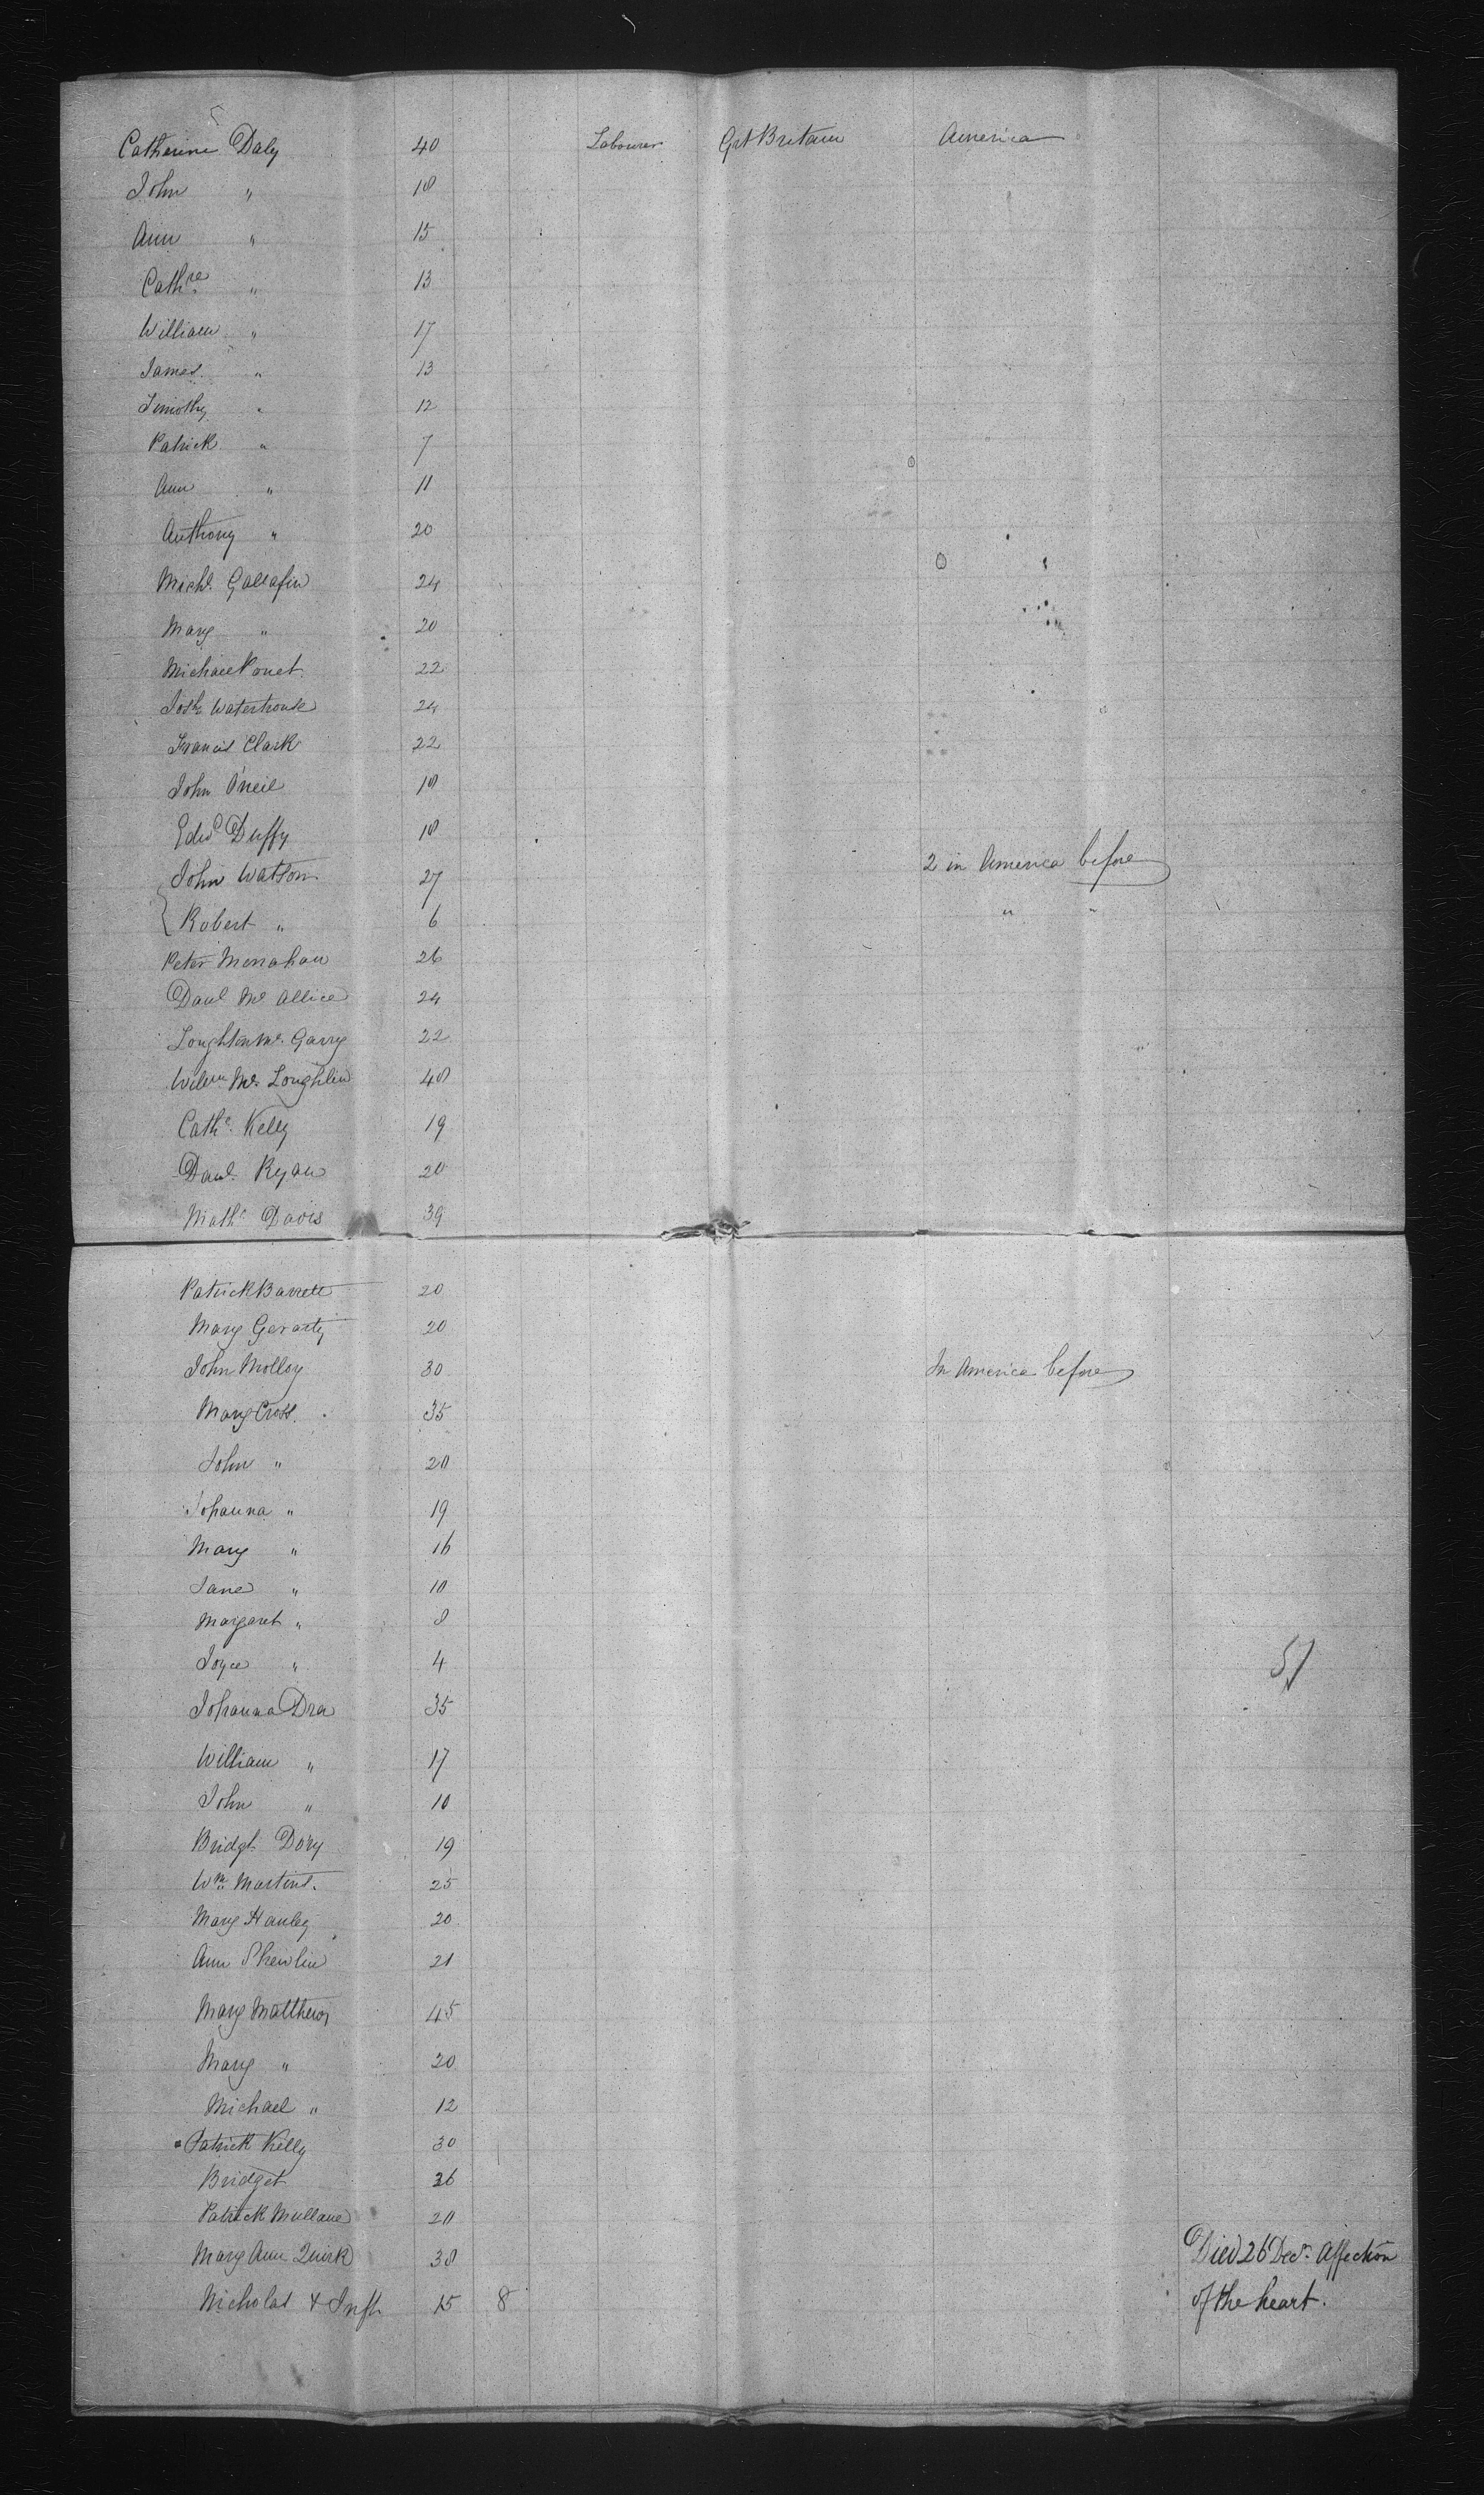 Catherine Daly 40 Labourer Grt Britain America
John " 18
Ann " 15
Cathre " 13
William " 17
James " 13
Timothy " 12
Patrick " 7
Ann " 11
Anthony " 20
Michl. Gallafin 24
Mary " 20
Michael 22
Josh. Waterhouse 24
Francis Clark 22
John O'neil 18
Edwd Duffy 18
John Watson 27 2 in America before
Robert " 6 " "
Peter Monahan 26
Danl Mc Allice 24
Loughlin Mc. Garry 22
Willm Mc. Loughlin 48
Cathe. Kelly 19
Danl. Ryan 20
Mathw Davis 39
Patrick Barrett 20
Mary Geraty 20
John Molloy 30 In America before
Mary Cross. 35
John " 20
Johanna " 19
Mary " 16
Jane " 10
Margaret " 8
Joyce " 4
57
Johanna Drea 35
William " 17
John " 10
Bridgt Dory 19
Wm. Martins. 25
Mary Hanley 20
Ann Shewlin 21
Mary Matthews 45
Mary " 20
Michael " 12
Patrick Kelly 30
Bridget 26
Patrick Mullane 20
Mary Ann Quirk 38 Died 26 Decr. Affection
Nicholas & Inft 15 8 of the heart.